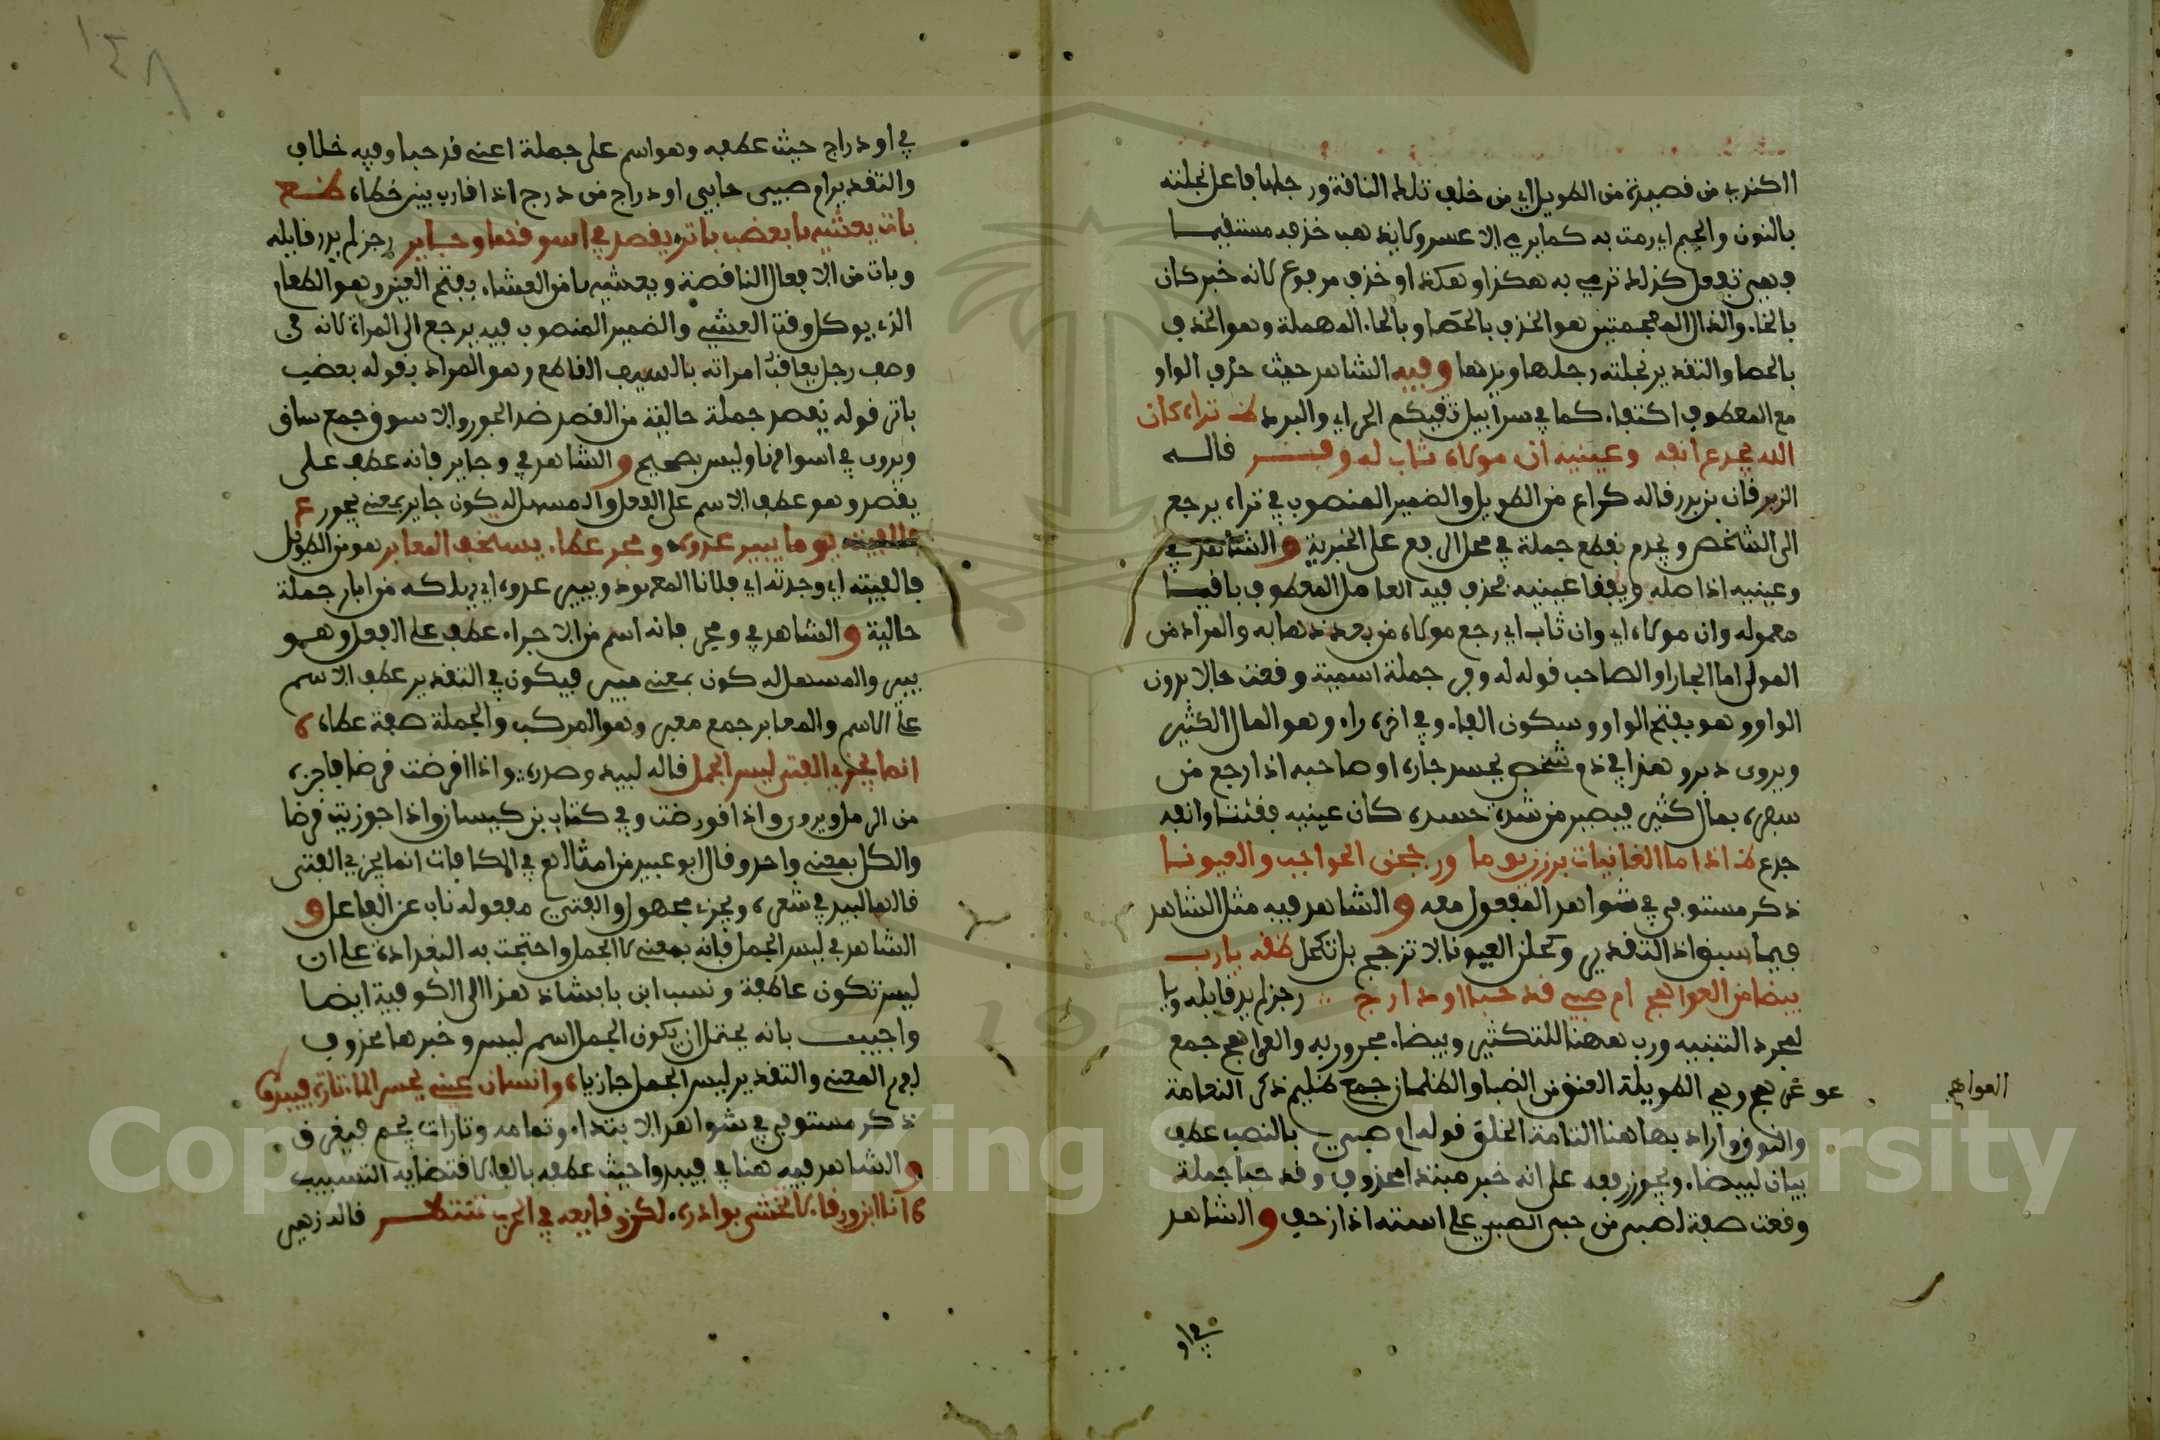 الكندي من قصيدة من الطويل اي من خلف تلك الناقة ورجلها فاعل نجلته
بالنون والجيم اي رمت به كما يرمي الاعسر ولا يذهب خذفه مستقيما
فهي تفعل كذلك ترمي به هكذا وهكذا وخذف مرفوع لانه خبر كان
بالخاء والذال المعجمتين هو الخذف بالحصا وبالحاء المهملة وهو الحذف
بالحصا والتقدير نجلته رجلها ويدها وفيه الشاهد حيث حذف الواو
مع المعطوف اكتفاء كما في سرابيل تقيكم الحر اي والبرد ظ تراه كان
الله يجدع انفه وعينيه ان مولاه ثاب له وفر قاله
الزبرقان بن بدر قاله كراع من الطويل والضمير المنصوب في تراه يرجع
الى الشخص ويجدع يقطع جملة في محل الرفع على الخبرية والشاهد في
وعينيه اذ اصله ويفقا عينيه فحذف فيه العامل المعطوف باقيا
معموله وان مولاه اي وان ثاب اي رجع مولاه من بعد ذهابه والمراد من
المولى اما الجار او الصاحب قوله له وفر جملة اسمية وقعت حالا بدون
الواو وهو بفتح الواو وسكون الفاء وفي اخره راء وهو المال الكثير
ويروى دبر وهذا في ذم شخص يحسد جاره او صاحبه اذا رجع من
سفره بمال كثير فيصير من شدة حسده كان عينيه فقئتا وانفه
جدع ظ اذا ما الغانيات برزن يوما وزججن الحواجب والعيونا
ذكر مستوفى في شواهد المفعول معه والشاهد فيه مثل الشاهد
فيما سبق اذ التقدير وكحلن العيون الا تزجج بل تكحل ظقه يا رب
بيضا من العواهج ام صبي قد حبا او دارج رجز لم يدر قايله ويا
لمجرد التنبيه ورب ههنا للتكثير وبيضاء مجرور به والعواهج جمع
العواهج
عوهج وهي الطويلة العنق من الضبا والظلمان جمع ظليم ذكر النعامة
والنوق واراد بها هنا التامة الخلق قوله ام صبي بالنصب عطف
بيان لبيضاء ويجوز رفعه على انه خبر مبتدا محذوف وقد حبا جملة
وقعت صفة لصبي من حبى الصبي على استه اذا زحف والشاهد
في او
في او دراج حيث عطفه وهو اسم على جملة اعني قد حبا وفيه خلاف
والتقدير ام صبي حابي او دراج من درج اذا قارب بين خطاه ظفع
بات يعشيها بعضب باتر يقصد في اسوقها وجاير رجز لم يدر قايله
وبات من الافعال الناقصة ويعشيها من العشاء بفتح العين وهو الطعام
الذي يوكل وقت العشي والضمير المنصوب فيه يرجع الى المراة لانه في
وصف رجل يعاقب امراته بالسيف القاطع وهو المراد بقوله بعضب
باتر قوله يقصد جملة حالية من القصد ضد الجور والاسوق جمع ساق
ويروى في اسوافها وليس بصحيح والشاهد في وجاير فانه عطف على
يقصد وهو عطف الاسم على الفعل والمسهل له كون جاير بمعنى يجور ع
فالفيته يوما يبير عدوه ومجر عطاء يستخف المعابر هو من الطويل
فالفيته اي وجدته اي فلانا المعهود ويبير عدوه اي يهلكه من ابار جملة
حالية والشاهد في ومجر فانه اسم من الاجراء عطف على الفعل وهو
يبير والمسهل له كون بمعنى مبير فيكون في التقدير عطف الاسم
على الاسم والمعابر جمع معبر وهو المركب والجملة صفة عطاء ه
انما يجزي الفتى ليس الجمل قاله لبيد وصدره واذا اقرضت قرضا فاجزه
من الرمل ويروى واذا قورضت وفي كتاب بن كيسان واذا جوزيت قرضا
والكل بمعنى واحد وقال ابو عبيد من امثالهم في المكافات انما يجزي الفتى
قالها لبيد في شعره ويجزى مجهول والفتى مفعوله ناب عن الفاعل و
الشاهد في ليس الجمل فانه بمعنى لا الجمل واحتجت به البغدادة على ان
ليس تكون عاطفة ونسب ابن بابشاذ هذا الى الكوفية ايضا
واجيب بانه يحتمل ان يكون الجمل اسم ليس وخبرها محذوف
لفهم المعنى والتقدير ليس الجمل جازيا وانسان عيني يحسر الماء تارة فيبدوا
ذكر مستوفى في شواهد الابتداء وتمامه وتارات يجم فيغرق
والشاهد فيه هنا في فيبدوا حيث عطفه بالفاء لاقتضايه التسبيب
ه ان ابن ورقاء لا تخشى بوادره لكن وقايعه في الحرب تنتظر قاله زهير